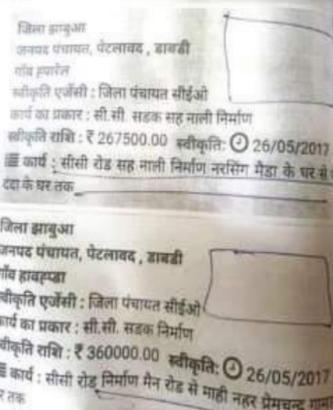 जिला झाबुआ
जनपद पंचायत, पेटलावद , डाबडी
गाँव
स्वीकृति एजेंसी : जिला पंचायत सीईओ
कार्य का प्रकार : सी.सी. सडक सह नाली निर्माण
स्वीकृति राशि : ₹ 267500.00 स्वीकृति: 26/05/2017
कार्य : सीसी रोड सह नाली निर्माण नरसिंग मैडा के घर से
ददा के घर तक
जिला झाबुआ
जनपद पंचायत, पेटलावद , डाबडी
गाँव
स्वीकृति एजेंसी : जिला पंचायत सीईओ
कार्य का प्रकार : सी.सी. सडक निर्माण
स्वीकृति राशि : ₹ 360000.00 स्वीकृति: 26/05/2017
कार्य : सीसी रोड निर्माण मैन रोड से माही नहर प्रेमचन्द
तक